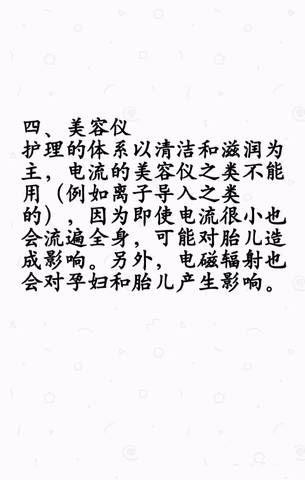 四、美容仪
护理的体系以清洁和滋润为
主，电流的美容仪之类不能
用（例如离子导入之类
的），因为即使电流很小也
会流遍全身，可能对胎儿造
成影响。另外，电磁辐射也
会对孕妇和胎儿产生影响。